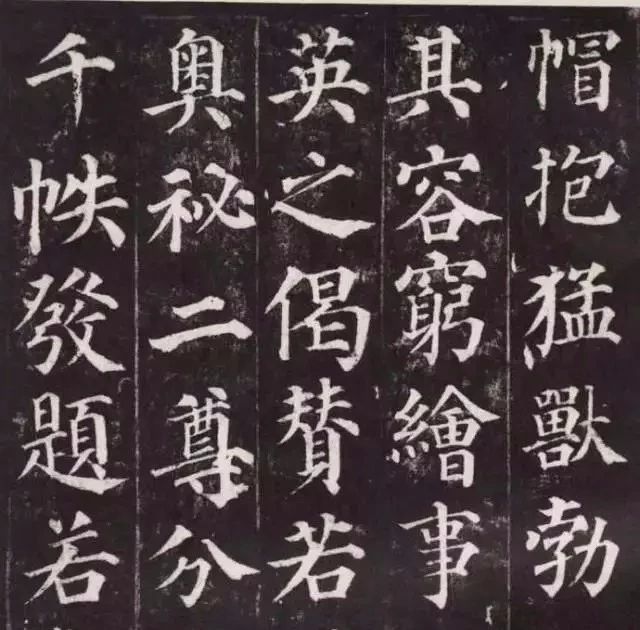 帽抱猛獸勃
其容窮繪事
英之偈贊若
奧祕二尊分
千帙發題若